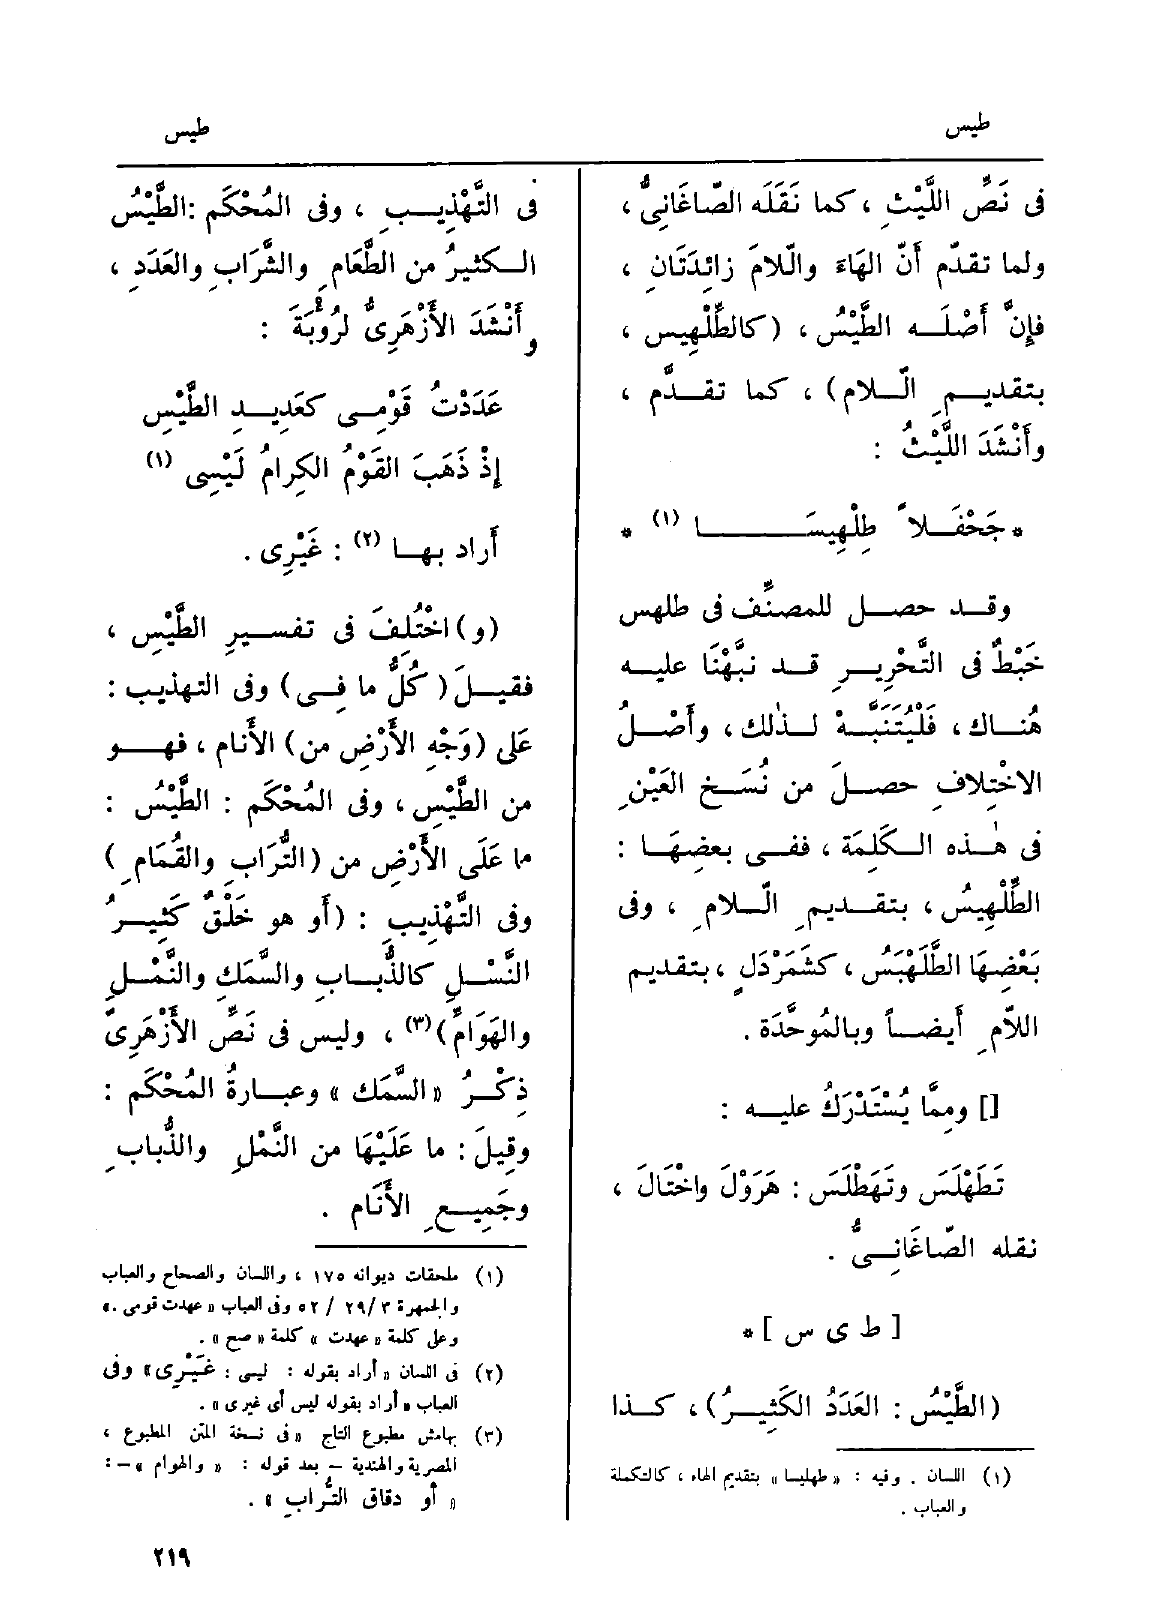 طيس
طيس
فى نَصِّ اللَّيْثِ ، كما نَقَلَه الصّاغَانِىُّ ،
ولما تقدّم أَنّ الهَاءَ والّلامَ زائِدَتَانِ ،
فإِنَّ أَصْلَــه الطَّيْسُ ، (كالطِّلْهِيسِ ،
بتقديـــمِ الّــلام) ، كما تقــدَّم ،
وأَنْشَدَ اللَّيْثُ :
* جَحْفَــلاً طِلْهِيسَــــــا (١) *
وقــد حصــل للمصنِّف فى طلهس
خَبْطٌ فى التَّحْرِيــرِ قــد نبَّهْنَا عليــه
هُنــاك ، فَلْيُتَنَبَّــهْ لــذٰلك ، وأَصْــلُ
الاخْتِلافِ حصــلَ من نُسَــخِ العَيْنِ
فى هٰــذه الــكَلِمَة ، ففــى بعضِهَــا :
الطِّلْهِيسُ ، بتقــديمِ الّــلامِ ، وفى
بَعْضِهَا الطَّلَهْبَسُ ، كشَمَرْدَلٍ ، بتقديم
اللاّمِ أَيضــاً وبالمُوحَّدَة .
[] وممَّا يُسْتَدْرَكُ عليــه :
تَطَهْلَسَ وتَهَطْلَسَ : هَرْوَلَ واخْتَالَ ،
نقله الصّاغَانِــىُّ .
[ ط ى س ] *
(الطَّيْسُ : العَدَدُ الكَثِيــرُ) ، كــذا
(١) اللسان . وفيه : « طهليسا » بتقديم الهاء ، كالتكملة
والعباب .
فى التَّهْذِيــبِ ، وفى المُحْكَم :الطَّيْسُ
الــكثيرُ من الطَّعَامِ والشَّرَابِ والعَدَدِ ،
وأَنْشَدَ الأَزْهَرِىُّ لرُؤْبَةَ :
عَدَدْتُ قَوْمِــى كعَدِيــدِ الطَّيْسِ
إِذْ ذَهَبَ القَوْمُ الكِرامُ لَيْسِى (١)
أَراد بهــا (٢) : غَيْرِى .
(و) اخْتُلِفَ فى تفســيرِ الطَّيْسِ ،
فقيــلَ ( كُلُّ ما فِــى) وفى التهذيب :
عَلى (وَجْهِ الأَرْضِ من) الأَنام ، فهــو
من الطَّيْسِ ، وفى المُحْكَم : الطَّيْسُ :
ما عَلَى الأَرْضِ من (التُّرَابِ والقُمَامِ )
وفى التَّهْذِيبِ : (أَو هو خَلْقٌ كَثِيــرُ
النَّسْــلِ كالذُّبــابِ والسَّمَكِ والنَّمْــلِ
والهَوَامِّ)(٣) ، وليس فى نَصِّ الأَزْهَرِىِّ
ذِكْــرُ « السَّمَك » وعبــارةُ المُحْكَم :
وقِيلَ : ما عَلَيْهَا من النَّمْلِ والذُّبابِ
وجَمِيــعِ الأَنَام .
(١) ملحقات ديوانه ١٧٥ ، واللسان والصحاح والعباب
والجمهرة ٢٩/٣ / ٥٢ وفى العباب « عهدت قومى .»
وعلى كلمة « عهدت » كلمة « صح » .
(٢) فى اللسان « أراد بقوله : ليسى : غَيْرِى » وفى
العباب « أراد بقوله ليس أى غيرى » .
(٣) بهامش مطبوع التاج « فى نسخة المتن المطبوع ،
المصرية والهندية – بعد قوله : « والهوام » – :
« أو دقاق التُّرابِ » .
٢١٩